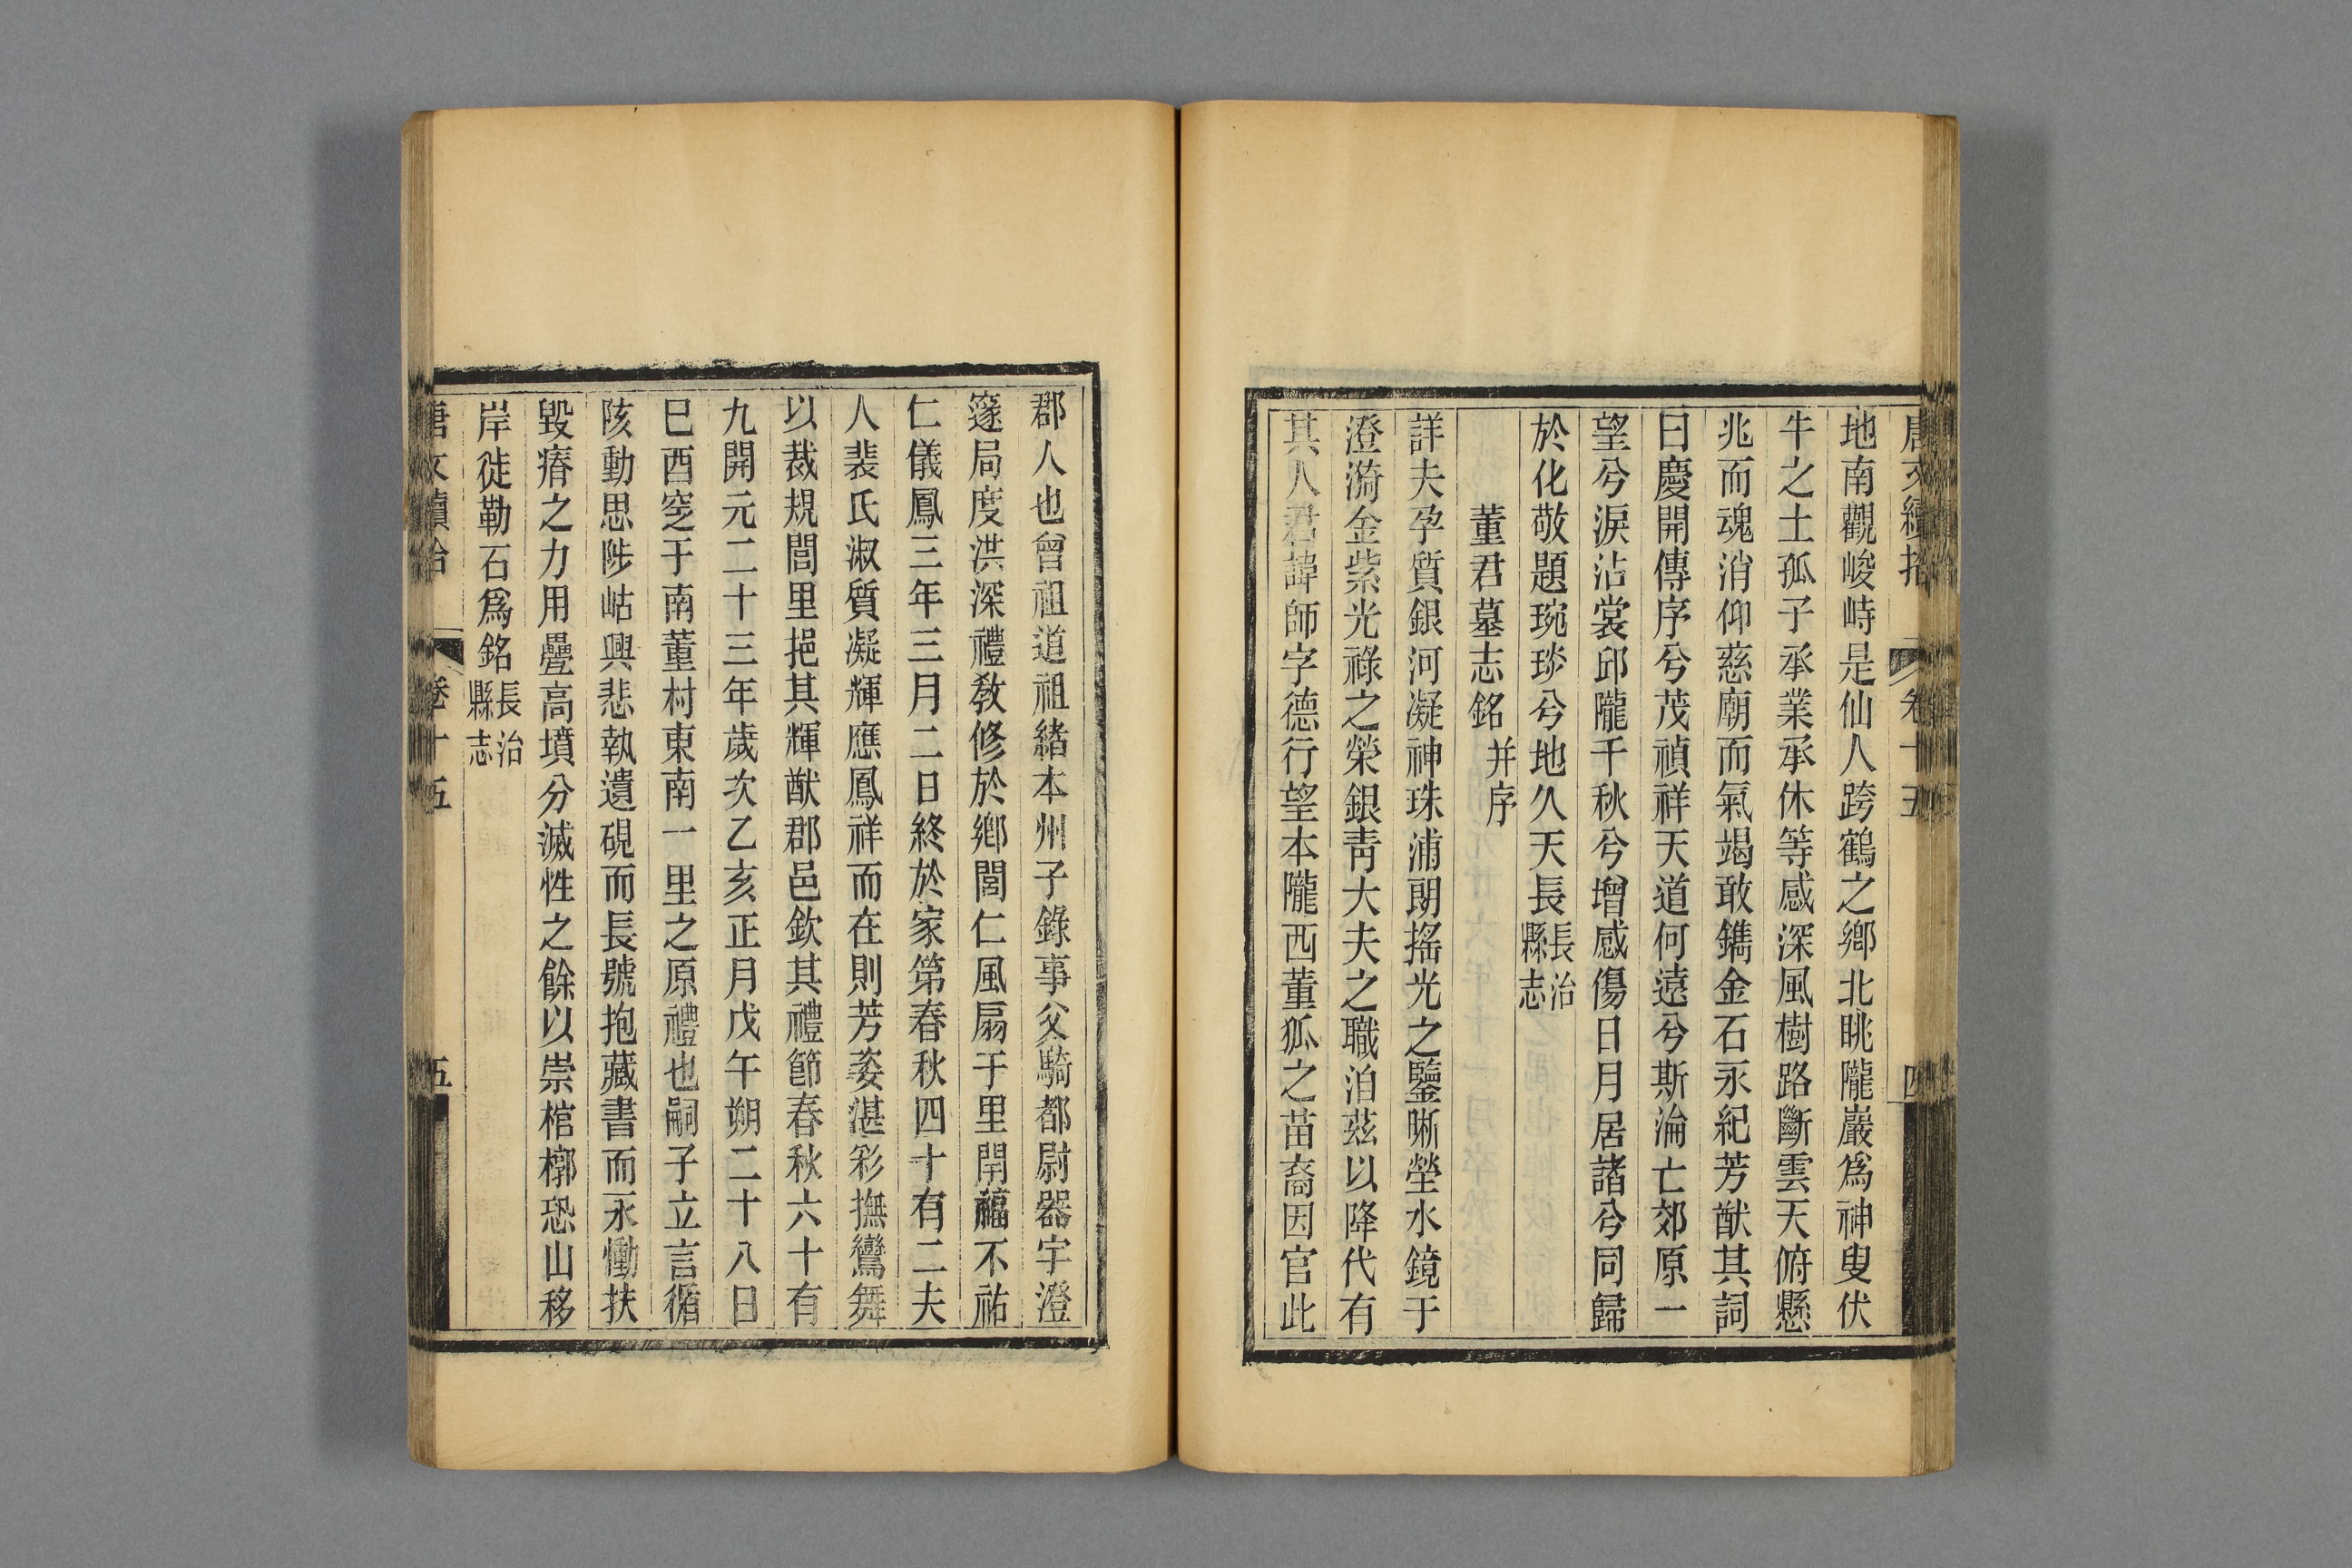 唐文續拾 卷十五 四
地南觀峻峙是仙人跨鶴之鄉北眺隴巖爲神叟伏
牛之土孤子承業承休等感深風樹路斷雲天俯懸
兆而魂消仰慈廟而氣竭敢鐫金石永紀芳猷其詞
曰慶開傳序兮茂禎祥天道何遠兮斯淪亡郊原一
望兮淚沾裳邱隴千秋兮增感傷日月居諸兮同歸
於化敬題琬琰兮地久天長長治縣志
董君墓志銘并序
詳夫孕質銀河凝神珠浦朗搖光之鑒晰瑩水鏡于
澄漪金紫光祿之榮銀靑大夫之職泊茲以降代有
其人君諱師字德行望本隴西董狐之苗裔因官此
郡人也曾祖道祖緒本州子錄事父騎都尉器宇澄
邃局度洪深禮教修於鄉閭仁風扇于里閈福不祐
仁儀鳳三年三月二日終於家第春秋四十有二夫
人裴氏淑質凝輝應鳳祥而在則芳姿湛彩撫鸞舞
以裁規閭里挹其輝猷郡邑欽其禮節春秋六十有
九開元二十三年歲次乙亥正月戊午朔二十八日
巳酉窆于南董村東南一里之原禮也嗣子立言循
陔動思陟岵興悲執遺硯而長號抱藏書而永慟扶
毀瘠之力用疊高墳分滅性之餘以崇棺槨恐山移
岸徙勒石爲銘長治縣志
唐文續拾 卷十五 五